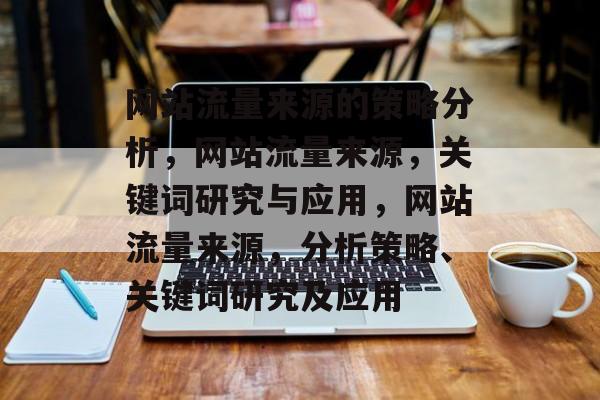 网站流量来源的策略分
析，网站流量来源，关
键词研究与应用，网站
流量来源，分析策略、
关键词研究及应用